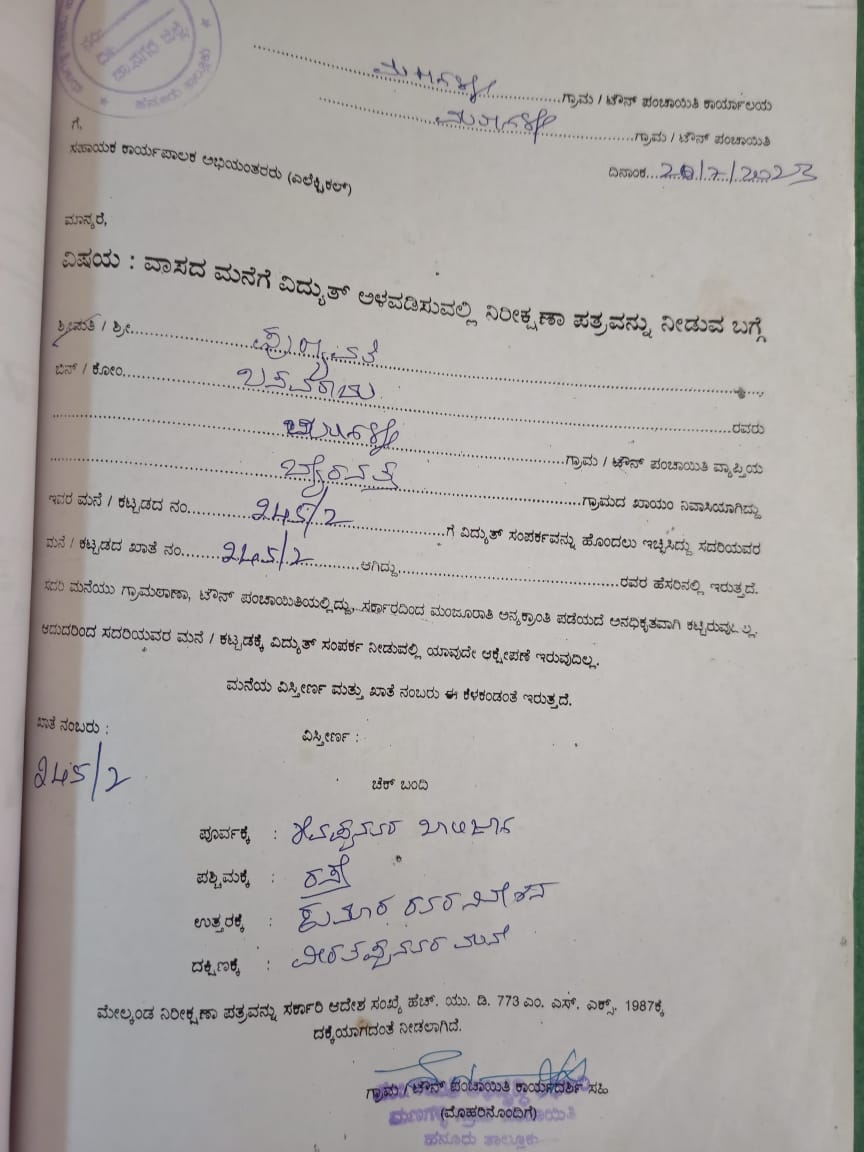 ಹನೂರು ತಾಲ್ಲೂಕು
ಮಣಗಳ್ಳಿ ಗ್ರಾಮ / ಟೌನ್ ಪಂಚಾಯಿತಿ ಕಾರ್ಯಾಲಯ
ಮಣಗಳ್ಳಿ ಗ್ರಾಮ / ಟೌನ್ ಪಂಚಾಯಿತಿ
ದಿನಾಂಕ...20/7/2023
ಗೆ,
ಸಹಾಯಕ ಕಾರ್ಯಪಾಲಕ ಅಭಿಯಂತರರು (ಎಲೆಕ್ಟ್ರಿಕಲ್)
ಮಾನ್ಯರೆ,
ವಿಷಯ : ವಾಸದ ಮನೆಗೆ ವಿದ್ಯುತ್ ಅಳವಡಿಸುವಲ್ಲಿ ನಿರೀಕ್ಷಣಾ ಪತ್ರವನ್ನು ನೀಡುವ ಬಗ್ಗೆ
ಶ್ರೀಮತಿ / ಶ್ರೀ
ಬಿನ್ / ಕೋಂ ಬಸವರಾಜು ರವರು
ಮಣಗಳ್ಳಿ ಗ್ರಾಮ / ಟೌನ್ ಪಂಚಾಯಿತಿ ವ್ಯಾಪ್ತಿಯ
ಬೈರನತ್ತ ಗ್ರಾಮದ ಖಾಯಂ ನಿವಾಸಿಯಾಗಿದ್ದು
ಇವರ ಮನೆ / ಕಟ್ಟಡದ ನಂ. 245/2 ಗೆ ವಿದ್ಯುತ್ ಸಂಪರ್ಕವನ್ನು ಹೊಂದಲು ಇಚ್ಛಿಸಿದ್ದು ಸದರಿಯವರ
ಮನೆ / ಕಟ್ಟಡದ ಖಾತೆ ನಂ. 245/2 ಆಗಿದ್ದು ರವರ ಹೆಸರಿನಲ್ಲಿ ಇರುತ್ತದೆ.
ಸದರಿ ಮನೆಯು ಗ್ರಾಮಠಾಣಾ, ಟೌನ್ ಪಂಚಾಯಿತಿಯಲ್ಲಿದ್ದು, ಸರ್ಕಾರದಿಂದ ಮಂಜೂರಾತಿ ಅನ್ಯಕ್ರಾಂತಿ ಪಡೆಯದೆ ಅನಧಿಕೃತವಾಗಿ ಕಟ್ಟಿರುವುದಿಲ್ಲ.
ಆದುದರಿಂದ ಸದರಿಯವರ ಮನೆ / ಕಟ್ಟಡಕ್ಕೆ ವಿದ್ಯುತ್ ಸಂಪರ್ಕ ನೀಡುವಲ್ಲಿ ಯಾವುದೇ ಆಕ್ಷೇಪಣೆ ಇರುವುದಿಲ್ಲ.
ಮನೆಯ ವಿಸ್ತೀರ್ಣ ಮತ್ತು ಖಾತೆ ನಂಬರು ಈ ಕೆಳಕಂಡಂತೆ ಇರುತ್ತದೆ.
ಖಾತೆ ನಂಬರು : ವಿಸ್ತೀರ್ಣ :
245/2
ಚೆಕ್ ಬಂದಿ
ಪೂರ್ವಕ್ಕೆ :
ಪಶ್ಚಿಮಕ್ಕೆ : ರಸ್ತೆ
ಉತ್ತರಕ್ಕೆ : ಕುಮಾರ ರವರ ನಿವೇಶನ
ದಕ್ಷಿಣಕ್ಕೆ : ವೀರತಪ್ಪನವರ ಮನೆ
ಮೇಲ್ಕಂಡ ನಿರೀಕ್ಷಣಾ ಪತ್ರವನ್ನು ಸರ್ಕಾರಿ ಆದೇಶ ಸಂಖ್ಯೆ ಹೆಚ್. ಯು. ಡಿ. 773 ಎಂ. ಎಸ್. ಎಕ್ಸ್. 1987ಕ್ಕೆ
ದಕ್ಕೆಯಾಗದಂತೆ ನೀಡಲಾಗಿದೆ.
ಗ್ರಾಮ / ಟೌನ್ ಪಂಚಾಯಿತಿ ಕಾರ್ಯದರ್ಶಿ ಸಹಿ
(ಮೊಹರಿನೊಂದಿಗೆ)
ಹನೂರು ತಾಲ್ಲೂಕು